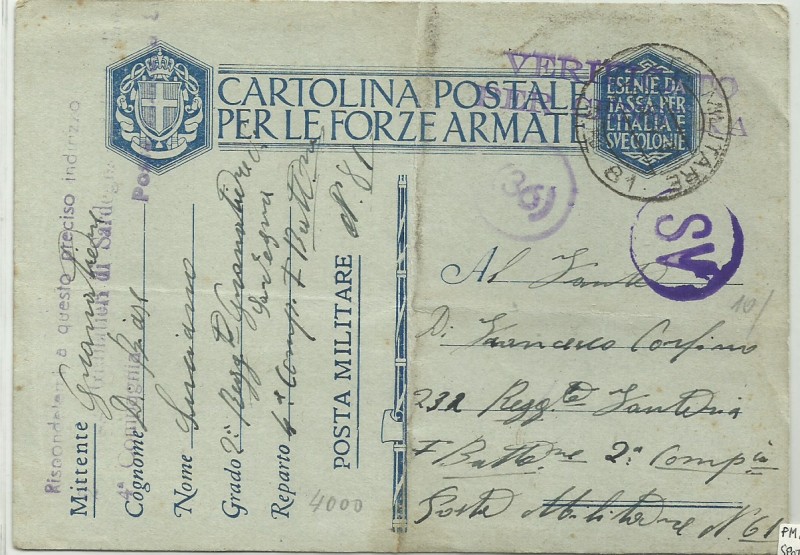 CARTOLINA POSTALE
PER LE FORZE ARMATE
ESENTE DA
TASSA PER
L'ITALIA E
SUE COLONIE
VERIFICATO
PER
MILITARE
81
36
AS
Rispondete a questo preciso indirizzo
4ª Compagnia
Granatieri di Sardegna
Mittente Granatiere
Cognome
Nome Luciano
Grado 2° Regg.to Granatieri
Sardegna
Reparto 4ª Comp. I Battne
POSTA MILITARE N. 81
4000
Al Fante
Di Francesco
232 Regg.to Fanteria
Battne 2ª Compia
Posta Militare N° 61
10/
PM